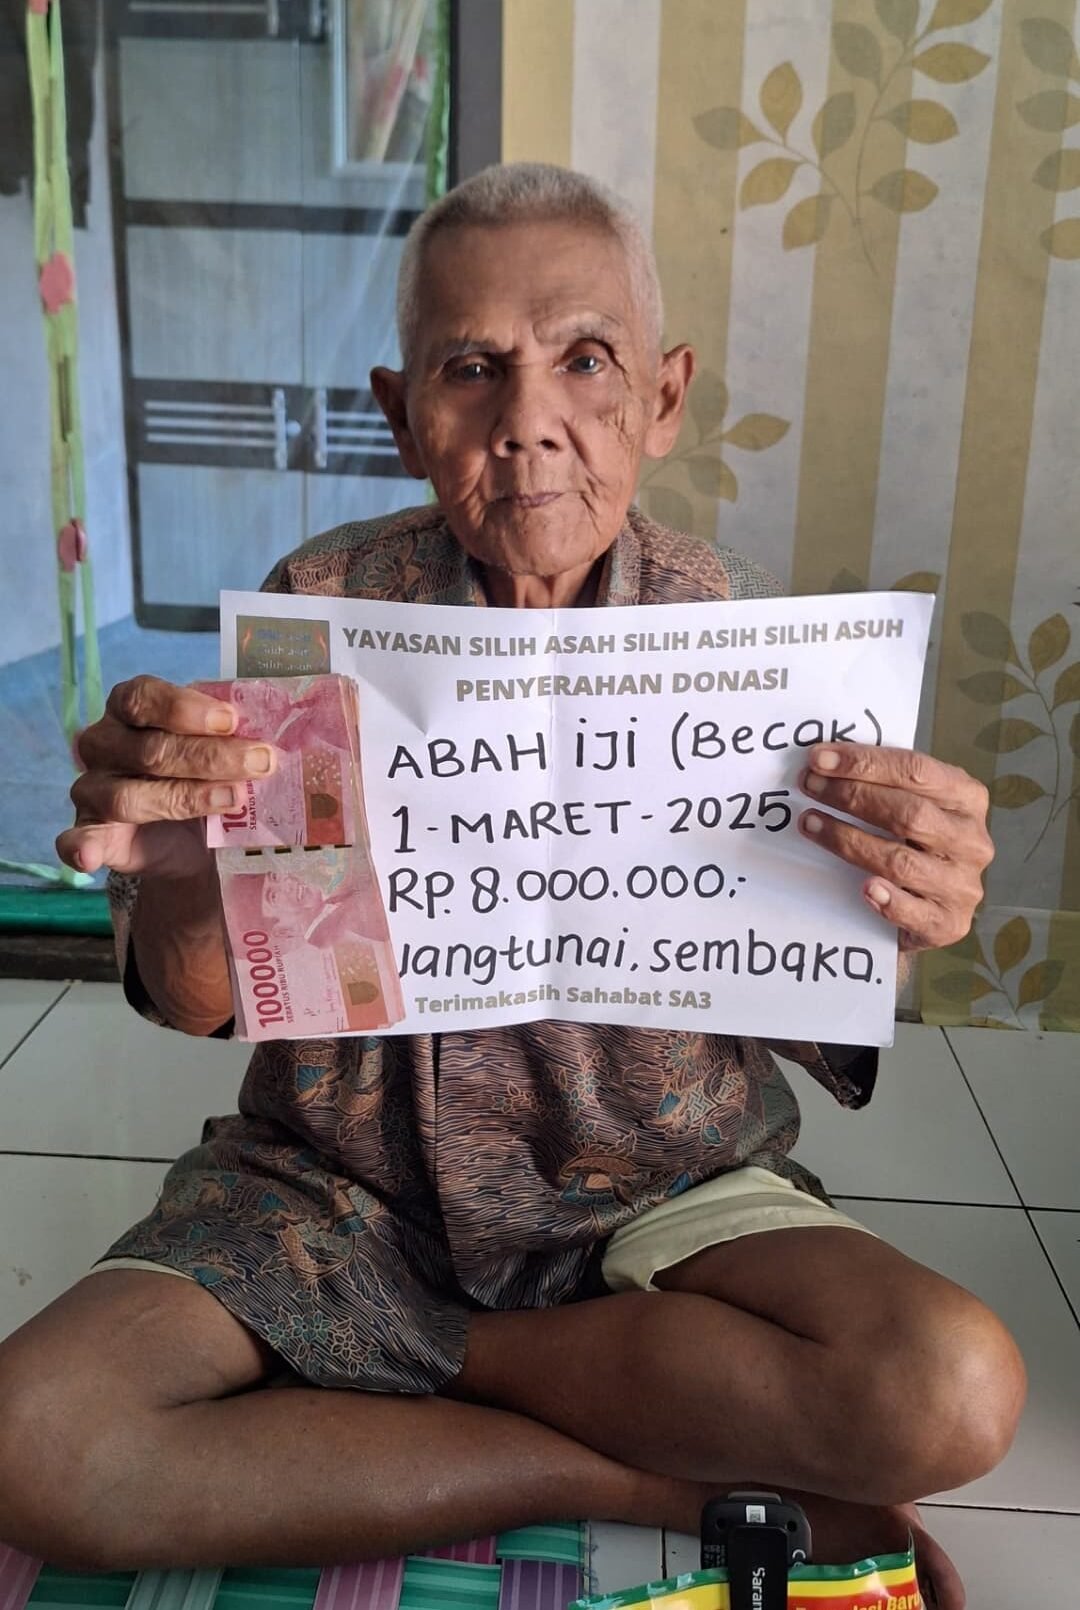 Silih asah
Silih asih
Silih asuh
YAYASAN SILIH ASAH SILIH ASIH SILIH ASUH
PENYERAHAN DONASI
ABAH iJi (Becak)
1-MARET-2025
RP. 8.000.000,-
uangtunai, sembako.
Terimakasih Sahabat SA3
100000
SERATUS RIBU RUPIAH